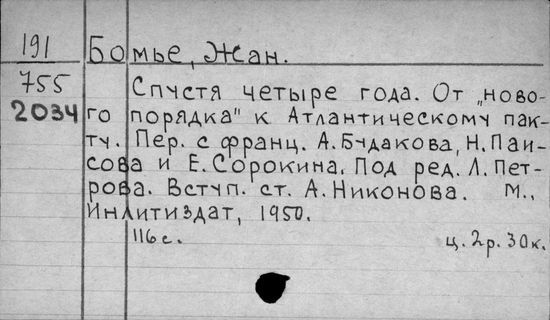 191 Бомье, Жан.
755 Спустя четыре года. От „ново-
2034 го порядка" к Атлантическому пак-
ту. Пер. с франц. А. Будакова, Н. Паи-
сова и Е. Сорокина. Под ред. Л. Пет-
рова. Вступ. ст. А. Никонова. М.,
Инлитиздат, 1950.
116 с. ц. 2р. 30к.